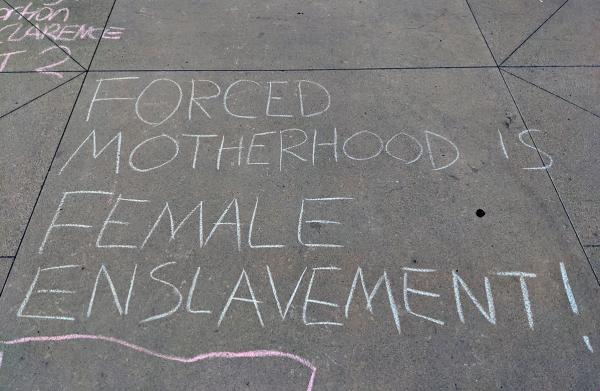 CLARENCE
FORCED
MOTHERHOOD IS
FEMALE
ENSLAVEMENT!